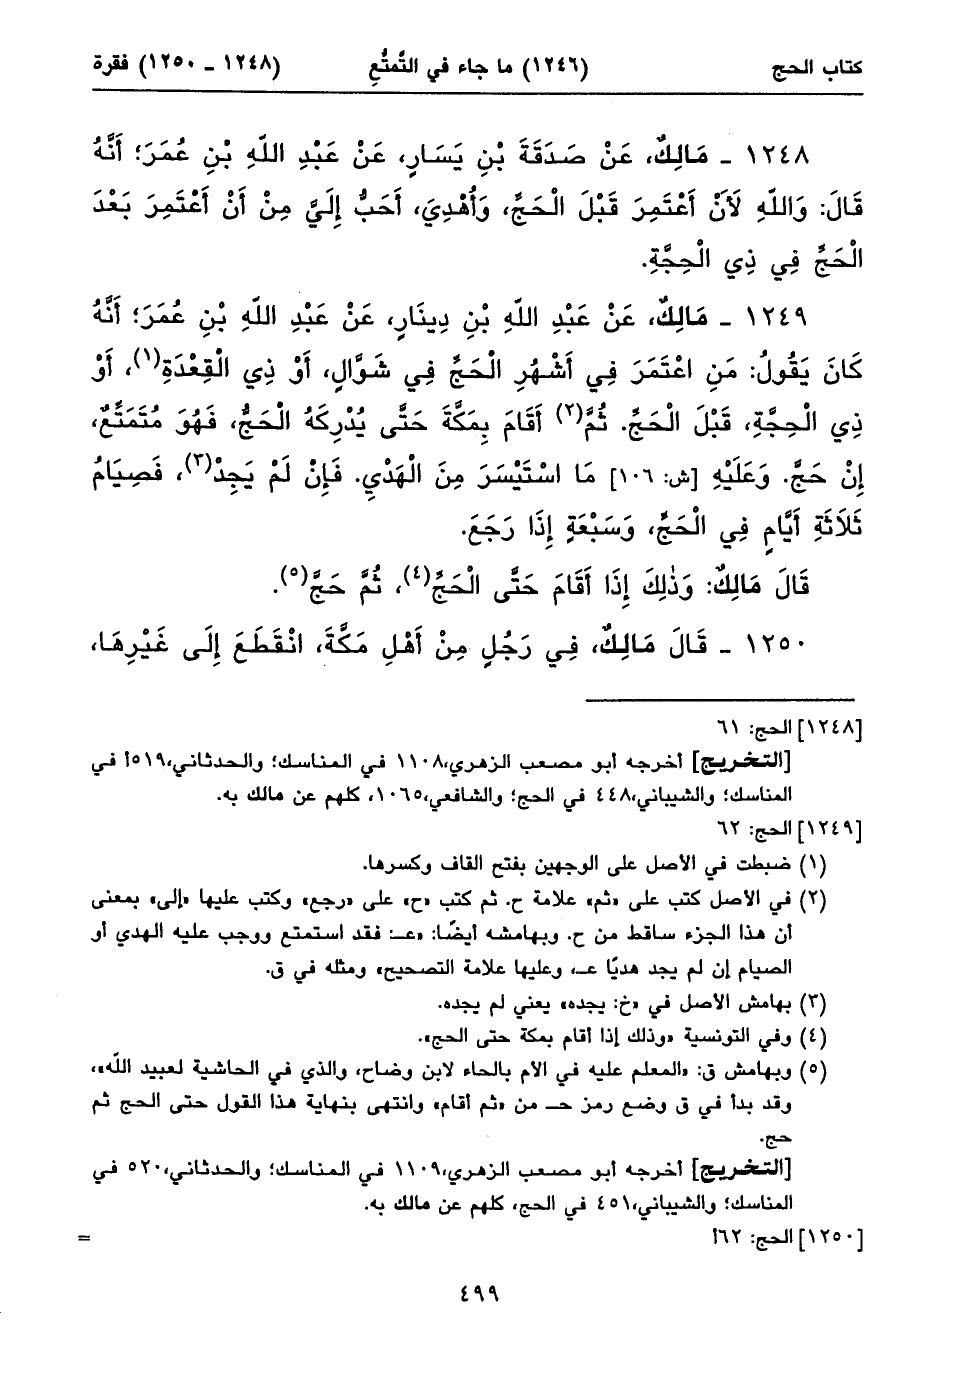 كتاب الحج (١٢٤٦) ما جاء في التَّمتُّعِ (١٢٤٨ ـ ١٢٥٠) فقرة
١٢٤٨ ـ مَالِكٌ، عَنْ صَدَقَةَ بْنِ يَسَارٍ، عَنْ عَبْدِ اللّهِ بْنِ عُمَرَ؛ أَنَّهُ
قَالَ: وَاللّهِ لَأَنْ أَعْتَمِرَ قَبْلَ الْحَجِّ، وَأُهْدِيَ، أَحَبُّ إِلَيَّ مِنْ أَنْ أَعْتَمِرَ بَعْدَ
الْحَجِّ فِي ذِي الْحِجَّةِ.
١٢٤٩ ـ مَالِكٌ، عَنْ عَبْدِ اللّهِ بْنِ دِينَارٍ، عَنْ عَبْدِ اللّهِ بْنِ عُمَرَ؛ أَنَّهُ
كَانَ يَقُولُ: مَنِ اعْتَمَرَ فِي أَشْهُرِ الْحَجِّ فِي شَوَّالٍ، أَوْ ذِي الْقِعْدَةِ(١)، أَوْ
ذِي الْحِجَّةِ، قَبْلَ الْحَجِّ. ثُمَّ(٢) أَقَامَ بِمَكَّةَ حَتَّى يُدْرِكَهُ الْحَجُّ، فَهُوَ مُتَمَتِّعٌ،
إِنْ حَجَّ. وَعَلَيْهِ [ش: ١٠٦] مَا اسْتَيْسَرَ مِنَ الْهَدْيِ. فَإِنْ لَمْ يَجِدْ(٣)، فَصِيَامُ
ثَلَاثَةِ أَيَّامٍ فِي الْحَجِّ، وَسَبْعَةٍ إِذَا رَجَعَ.
قَالَ مَالِكٌ: وَذٰلِكَ إِذَا أَقَامَ حَتَّى الْحَجِّ(٤)، ثُمَّ حَجَّ(٥).
١٢٥٠ ـ قَالَ مَالِكٌ، فِي رَجُلٍ مِنْ أَهْلِ مَكَّةَ، انْقَطَعَ إِلَى غَيْرِهَا،
[١٢٤٨] الحج: ٦١
[التخريج] أخرجه أبو مصعب الزهري، ١١٠٨ في المناسك؛ والحدثاني، ٥١٩أ في
المناسك؛ والشيباني، ٤٤٨ في الحج؛ والشافعي، ١٠٦٥، كلهم عن مالك به.
[١٢٤٩] الحج: ٦٢
(١) ضبطت في الأصل على الوجهين بفتح القاف وكسرها.
(٢) في الأصل كتب على «ثم» علامة ح. ثم كتب «ح» على «رجع» وكتب عليها «إلى» بمعنى
أن هذا الجزء ساقط من ح. وبهامشه أيضًا: «عـ: فقد استمتع ووجب عليه الهدي أو
الصيام إن لم يجد هديًا عـ، وعليها علامة التصحيح» ومثله في ق.
(٣) بهامش الأصل في «خ: يجده» يعني لم يجده.
(٤) وفي التونسية «وذلك إذا أقام بمكة حتى الحج».
(٥) وبهامش ق: «المعلم عليه في الأم بالحاء لابن وضاح، والذي في الحاشية لعبيد اللّه»،
وقد بدأ في ق وضع رمز حـ من «ثم أقام» وانتهى بنهاية هذا القول حتى الحج ثم
حج.
[التخريج] أخرجه أبو مصعب الزهري، ١١٠٩ في المناسك؛ والحدثاني، ٥٢٠ في
المناسك؛ والشيباني، ٤٥١ في الحج، كلهم عن مالك به.
[١٢٥٠] الحج: ٦٢أ =
٤٩٩